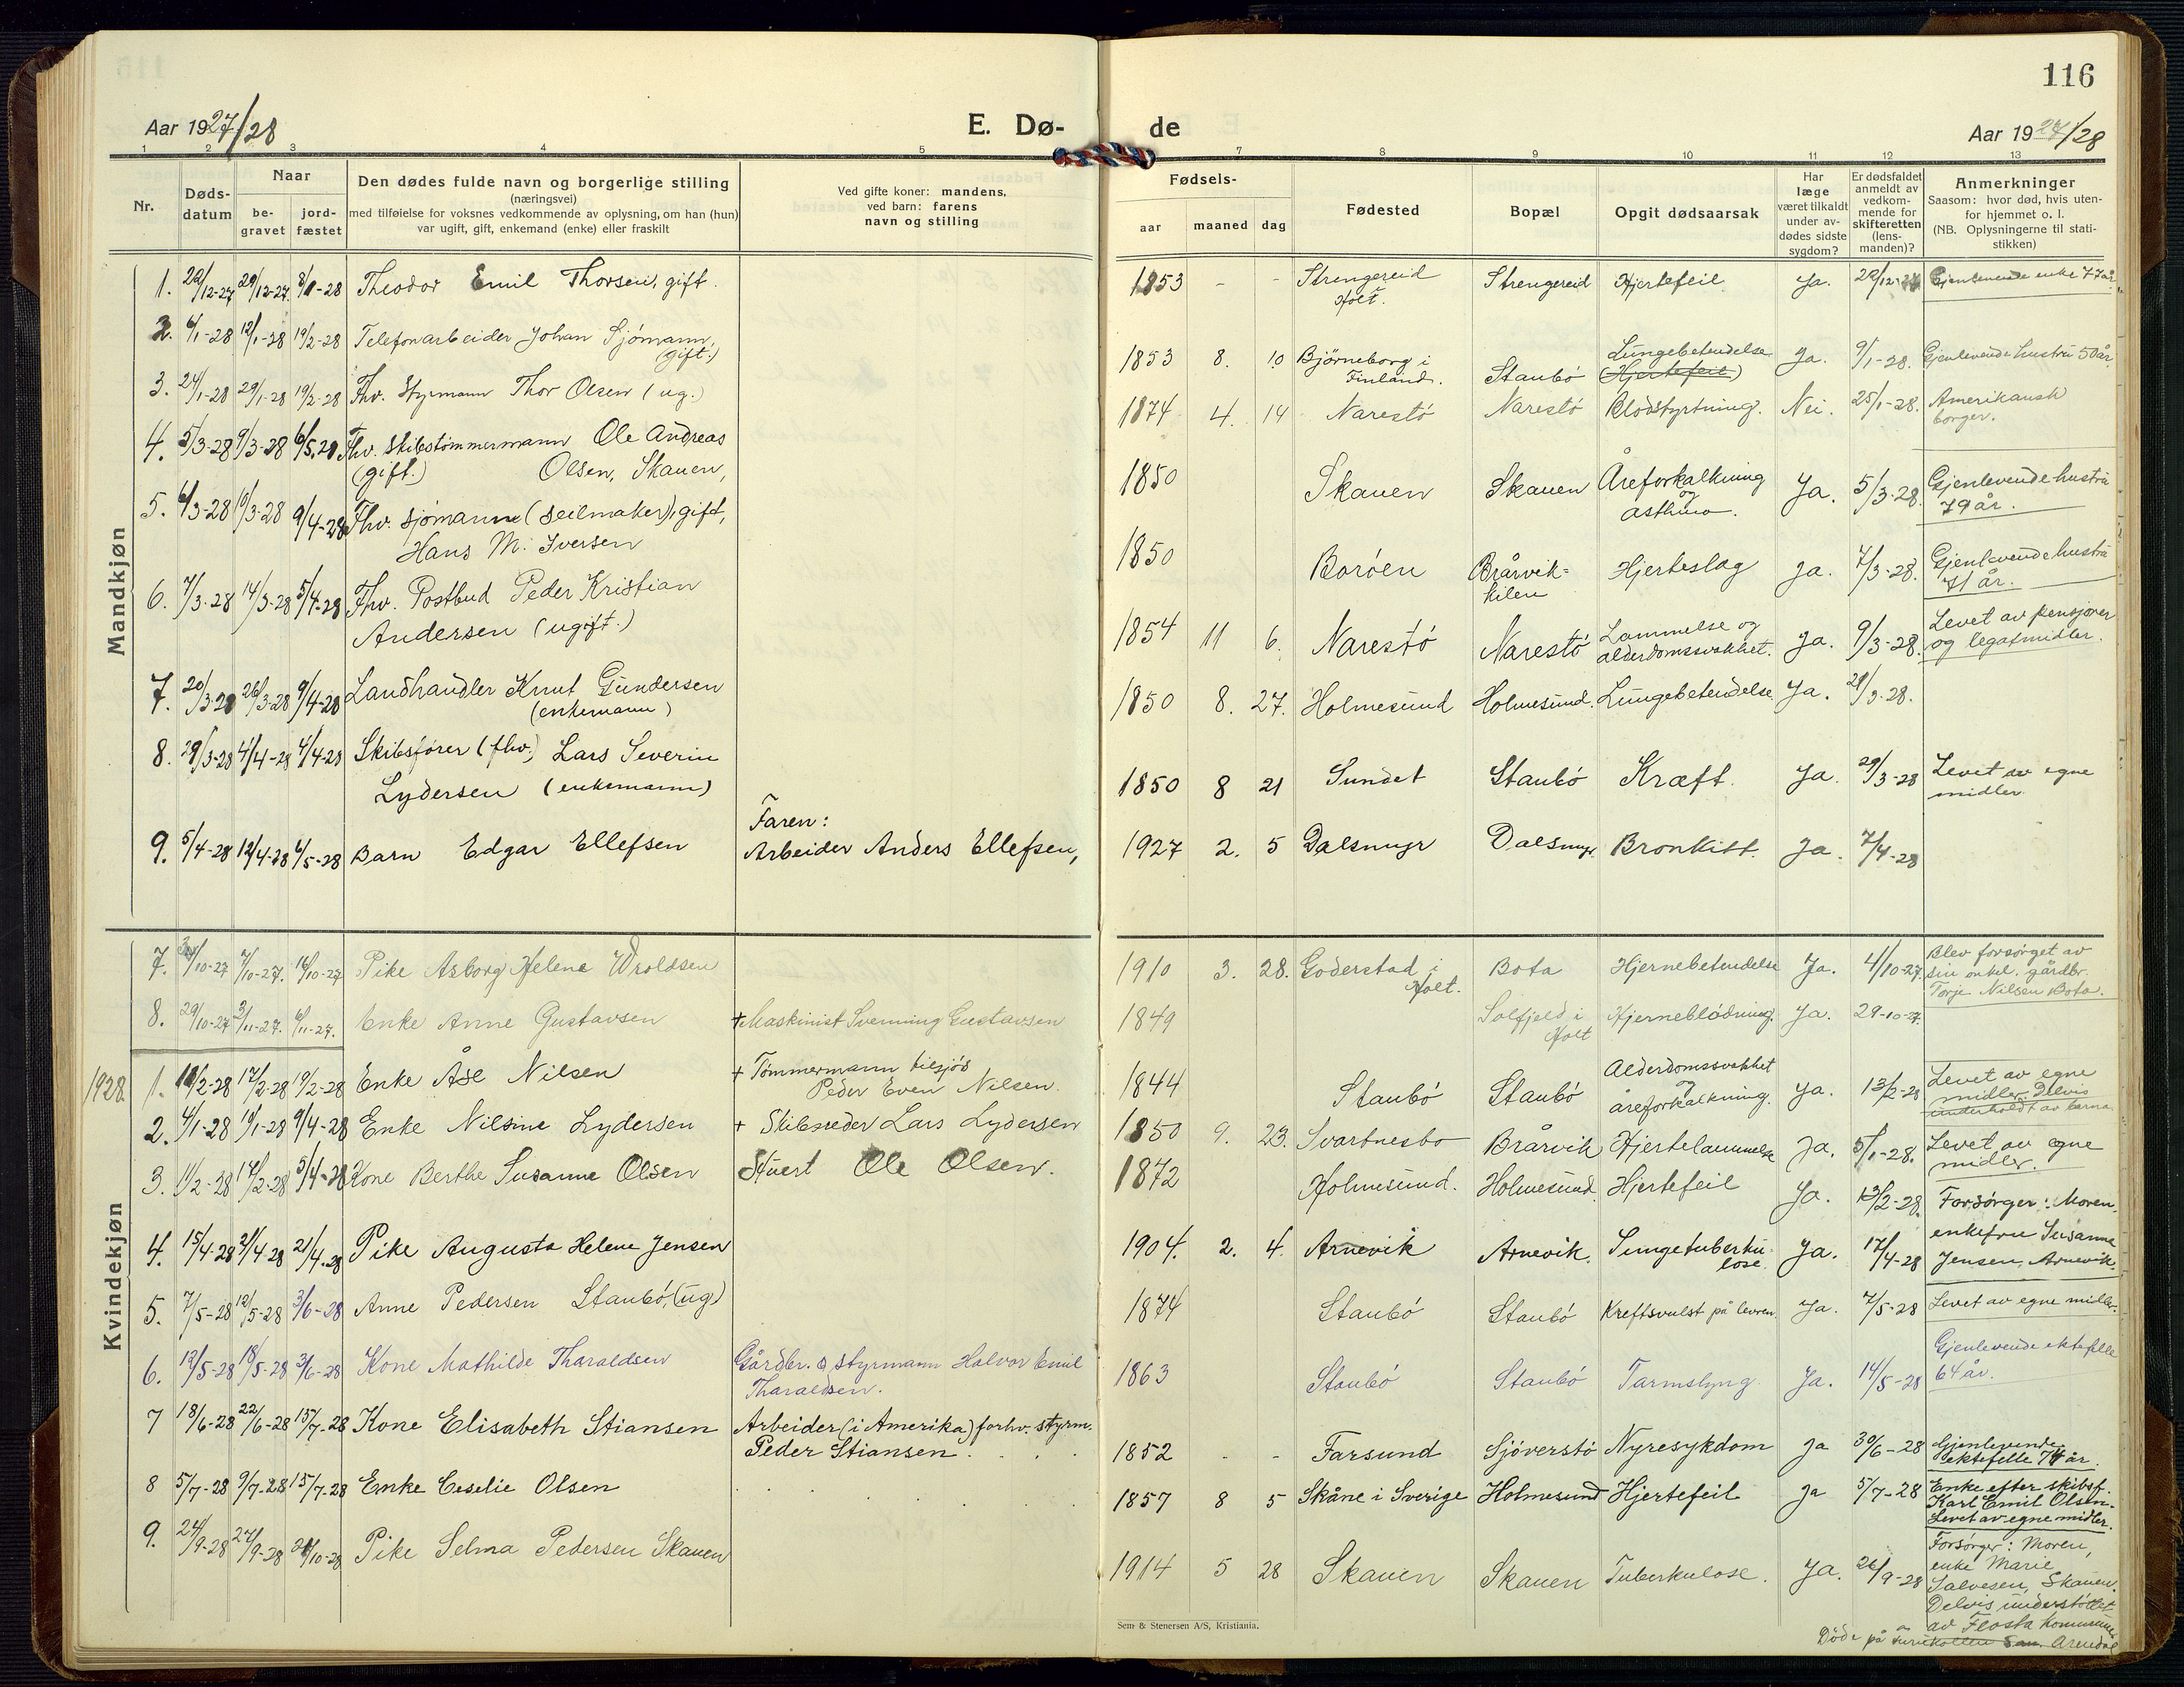 116
Aar 1927/28
E. Dø-
de
Aar 1927/28
1 2 3 4 5 7 8 9 10 11 12 13
Nr.
Døds-
datum
Naar
be-
gravet
jord-
fæstet
Den dødes fulde navn og borgerlige stilling
(næringsvei)
med tilføielse for voksnes vedkommende av oplysning, om han (hun)
var ugift, gift, enkemand (enke) eller fraskilt
Ved gifte koner: mandens,
ved barn: farens
navn og stilling
Fødsels-
aar maaned dag
Fødested
Bopæl
Opgit dødsaarsak
Har
læge
været tilkaldt
under av-
dødes sidste
sygdom?
Er dødsfaldet
anmeldt av
vedkom-
mende for
skifteretten
(lens-
manden)?
Anmerkninger
Saasom: hvor død, hvis uten-
for hjemmet o. l.
(NB. Oplysningerne til stati-
stikken)
Mandkjøn
1. 22/12-27 29/12-27 8/1-28 Theodor Emil Thorsen, gift. 1853 - - Strengereid Strengereid Hjertefeil Ja. 22/12-27 Gjenlevende enke 77 år.
Holt.
2. 6/1-28 12/1-28 19/2-28 Telefonarbeider Johan Sjömann,
(gift.)
1853 8. 10 Björneborg i Staubö Lungebetendelse Ja. 9/1-28. Gjenlevende hustru 50 år.
Finland. (Hjertefeil)
3. 24/1-28 29/1-28 19/2-28 Fhv. Styrmann Thor Olsen (ug.) 1874 4. 14 Narestö Narestö Blodstyrtning. Nei. 25/1-28. Amerikansk
borger.
4. 5/3-28 9/3-28 6/5.28 Fhv. skibstömmermann Ole Andreas
(gift.) Olsen, Skauen,
1850 Skauen Skauen Åreforkalkning Ja. 5/3-28. Gjenlevende hustru
og
asthma. 79 år.
5. 6/3-28 10/3-28 9/4-28 Fhv. sjömann (seilmaker), gift,
Hans M. Iversen
1850 Boröen Brårvik- Hjerteslag Ja. 7/3-28. Gjenlevende hustru
kilen 71 år.
6. 7/3-28 14/3-28 5/4-28 Fhv. Postbud Peder Kristian
Andersen (ugift.)
1854 11 6. Narestö Narestö Lammelse og Ja. 9/3-28. Levet av pensjoner
alderdomssvakhet. og legatmidler.
7. 20/3-28 26/3-28 9/4-28 Landhandler Knut Gundersen
(enkemann)
1850 8. 27. Holmesund Holmesund. Lungebetendelse Ja. 21/3-28.
8. 29/3-28 4/4-28 4/4-28 Skibsförer (fhv.) Lars Severin
Lydersen (enkemann)
1850 8 21 Sundet Staubö Kræft. Ja. 29/3-28 Levet av egne
midler.
9. 5/4-28 12/4-28 6/5-28 Barn Edgar Ellefsen Faren:
Arbeider Anders Ellefsen,
1927 2. 5 Dalsmyr Dalsmyr. Bronkitt. Ja. 7/4-28
Kvindekjøn
7. 30/10-27 7/10-27. 16/10-27 Pike Asborg Helene Wroldsen
1910 3. 28. Goderstad i Bota Hjernebetendelse Ja. 4/10-27. Blev forsörget av
Holt. sin onkel. gårdbr.
Torje Nilsen Bota.
8. 29/10-27 3/11-27. 6/11-27. Enke Anne Gustavsen + Maskinist Svenning Gustavsen
1849 Solfjeld i Hjerneblödning. Ja. 29-10-27.
Holt
1928.
1. 11/2-28 17/2-28 19/2-28 Enke Åse Nilsen + Tömmermann tilsjös
Peder Even Nilsen.
1844 Staubö Staubö Alderdomssvakhet Ja. 13/2-28 Levet av egne
og
åreforkalkning. midler. Delvis
underholdt av barna
2. 4/1-28 10/1-28 9/4-28 Enke Nilsine Lydersen + Skibsreder Lars Lydersen
1850 9. 23. Svartnesbo Brårvik Hjertelammelse Ja. 5/1-28. Levet av egne
midler.
3. 11/2-28 17/2-28 5/4-28 Kone Berthe Susanne Olsen Stuert Ole Olsen.
1872 Holmesund. Holmesund. Hjertefeil Ja. 13/2-28.
4. 15/4-28 21/4-28 21/4-28 Pike Augusta Helene Jensen
1904. 2. 4. Arnevik Arnevik. Lungetuberku- Ja. 17/4-28 Forsörger: Moren,
lose. enkefru Susanna
Jensen, Arnevik.
5. 7/5-28 12/5-28 3/6-28 Anne Pedersen Staubö, (ug)
1874 Staubö Staubö Kreftsvulst på levren. Ja. 7/5-28 Levet av egne midler.
6. 12/5-28 18/5-28 3/6-28 Kone Mathilde Tharaldsen Gårdbr. & styrmann Halvor Emil
Tharaldsen.
1863 Staubö Staubö Tarmslyng. Ja. 14/5-28 Gjenlevende ektefelle
64 år.
7 18/6-28 22/6-28 15/7-28 Kone Elisabeth Stiansen Arbeider (i Amerika) forhv. styrm.
Peder Stiansen.
1852 - - Farsund Sjöverstö Nyresykdom Ja 30/6-28 Gjenlevende
ektefelle 74 år.
8 5/7-28 9/7-28 15/7-28 Enke Ceselie Olsen
1857 8 5 Skåne i Sverige Holmesund Hjertefeil Ja 5/7-28 Enke efter skibsf.
Karl Emil Olsen.
Levet av egne midler.
9. 24/9-28 27/9-28 21/10-28 Pike Selma Pedersen Skauen
1914 5 28 Skauen Skauen Tuberkulose. Ja. 26/9-28 Forsörger: Moren,
enke Marie
Salvesen, Skauen.
Delvis understöttet
av Flosta kommune
Döde på Arendal
Sem & Stenersen A/S, Kristiania.